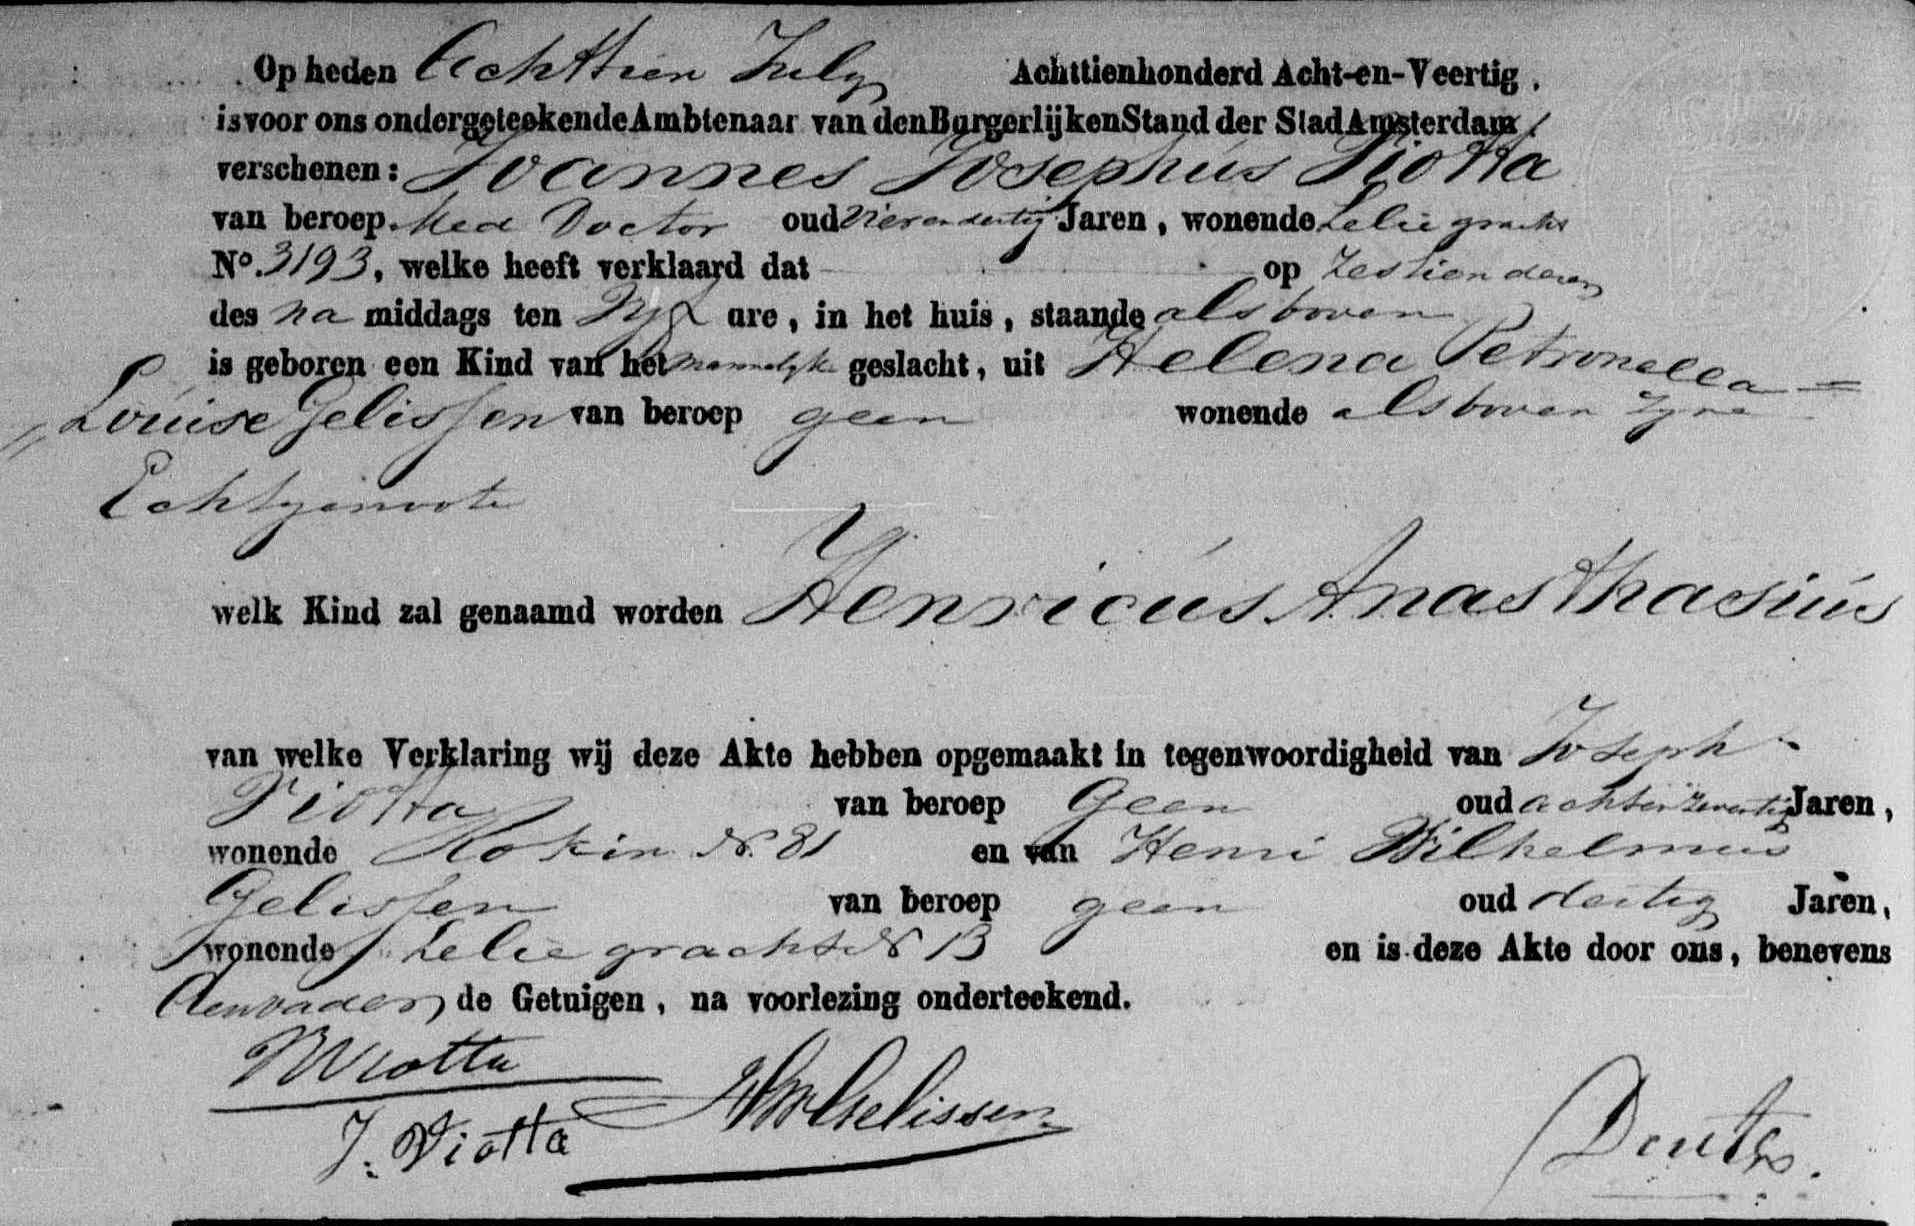 Op heden Achttien July Achttienhonderd Acht-en-Veertig,
is voor ons ondergeteekende Ambtenaar van den Burgerlijken Stand der Stad Amsterdam,
verschenen: Joannes Josephus Viotta
van beroep Med Doctor oud vierendertig Jaren, wonende Leliegracht
No. 3193, welke heeft verklaard dat op Zestien dezer
des na middags ten Vyf ure, in het huis, staande als boven
is geboren een Kind van het mannelyk geslacht, uit Helena Petronella =
„ Louise Gelissen van beroep geen wonende als boven zyne
Echtgenoote
welk Kind zal genaamd worden Henricus Anasthasius
van welke Verklaring wij deze Akte hebben opgemaakt in tegenwoordigheid van Joseph
Viotta van beroep Geen oud achtenzeventig Jaren,
wonende Rokin N. 81 en van Henri Wilhelmus
Gelissen van beroep geen oud dertig Jaren,
wonende Leliegracht N 13 en is deze Akte door ons, benevens
den vader, de Getuigen, na voorlezing onderteekend.
Viotta
HW Gelissen
J. Viotta